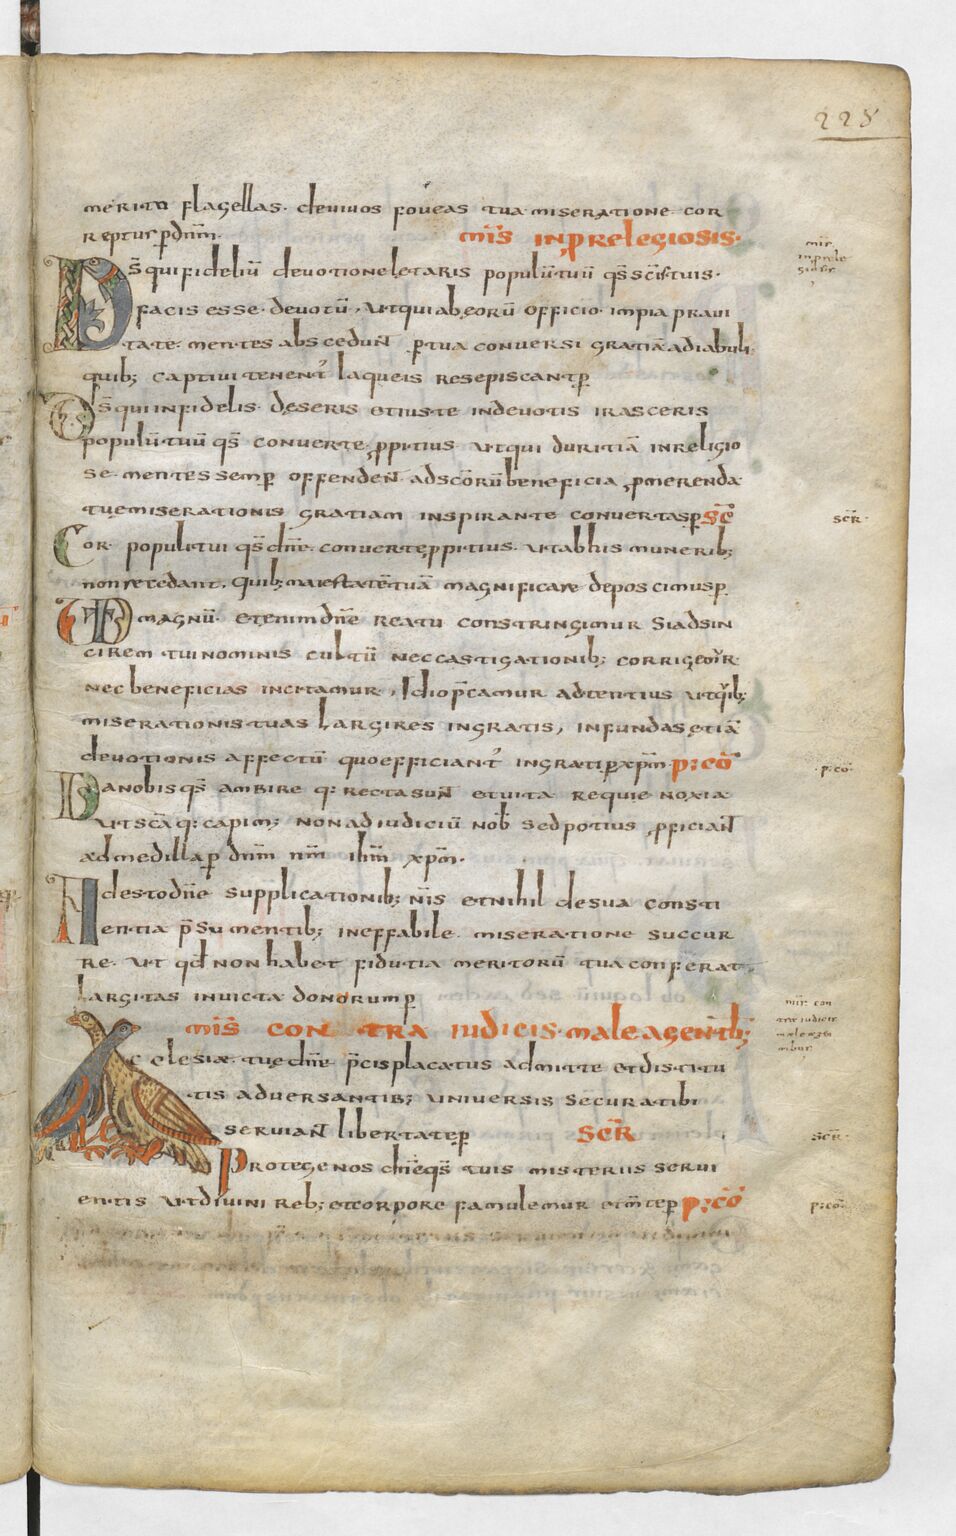 228
merito flagellas. deuiuos foueas tua miseratione. cor
reptus ꝑdn̄m. mīs inp̱relegiosis.
mīr
inp̱rele
giosir
Ds̄ quifideliū deuotione letaris populū tuū qs̄ sc̄istuis.
facis esse. deuotū, utquiabeorū officio. impia praui
tate. mentes abscedunt̄ ꝑtua conuersi gratiā adiabuli
quib; captiui tenent᷑ laqueis resepiscant ꝑ
Ds̄ quiinfidelis. deseris etiuste indeuotis irasceris
populū tuū qs̄ conuerte, ꝓpitius. utqui duritiā inreligio
se. mentes semꝑ offendent̄ adsc̄orū beneficia ꝓmerenda
tuęmiserationis gratiam inspirante conuertasꝑ sec̄
secr̄
Cor. populitui qs̄ dn̄e. conuertę ꝓpitius. utabhis munerib;
nonrecedant. quib; maiestatē tuā magnificare deposcimus ꝑ
UD magnū. etenim dn̄e reatu constringimur siadsin
cirem tuinominis cultū neccastigationib; corrigem̄r
nec beneficias incitamur, Idiop̄camur adtentius utq̄ib;
miserationis tuas largires ingratis, infundas ętiā
deuotionis affectū quoefficiant᷑ ingrati ꝑ xp̄m. p: cō
.p:cō.
Da nobis qs̄ ambire q: recta sunt̄ etuita requie noxia
utsc̄a q: capim; nonadiudiciū nob̄ sedpotius ꝓficiant̄
ad medilla ꝑ dn̄m nr̄m ihm̄ xp̄m.
Adestodn̄e supplicationib; nr̄is etnihil desua consti
entia p̄sumentib; ineffabile. miseratione succur
re. ut qd̄ non habet fidutia meritorū tua conferat
largitas inuicta donorum ꝑ
mīs con tra iudicis. male agentib;
mir̄ con
tra iudicir
male agen
tibur
Ecelesiæ. tuę dn̄e p̄cis placatus admitte et distitu
tis aduersantib; uniuersis secura tibi
seruiant̄ libertate ꝑ secr̄
secr̄
Protege nos dn̄e qs̄ tuis misteriis serui
entis utdiuini reb; etcorpore famulemur etm̄te ꝑ p: cō
p:cō